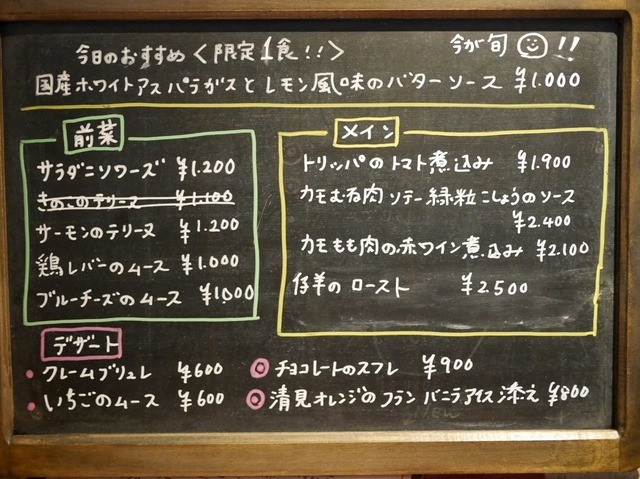 今日のおすすめ〈限定1食!!〉 今が旬 !!
国産ホワイトアスパラガスとレモン風味のバターソース ¥1.000
前菜
サラダニソワーズ ¥1.200
きのこのテリーヌ ¥1.100
サーモンのテリーヌ ¥1.200
鶏レバーのムース ¥1.000
ブルーチーズのムース ¥1000
メイン
トリッパのトマト煮込み ¥1.900
カモむね肉ソテー緑粒こしょうのソース
¥2.400
カモもも肉の赤ワイン煮込み ¥2.100
仔羊のロースト ¥2.500
デザート
クレームブリュレ ¥600
いちごのムース ¥600
チョコレートのスフレ ¥900
清見オレンジのフラン バニラアイス添え ¥800